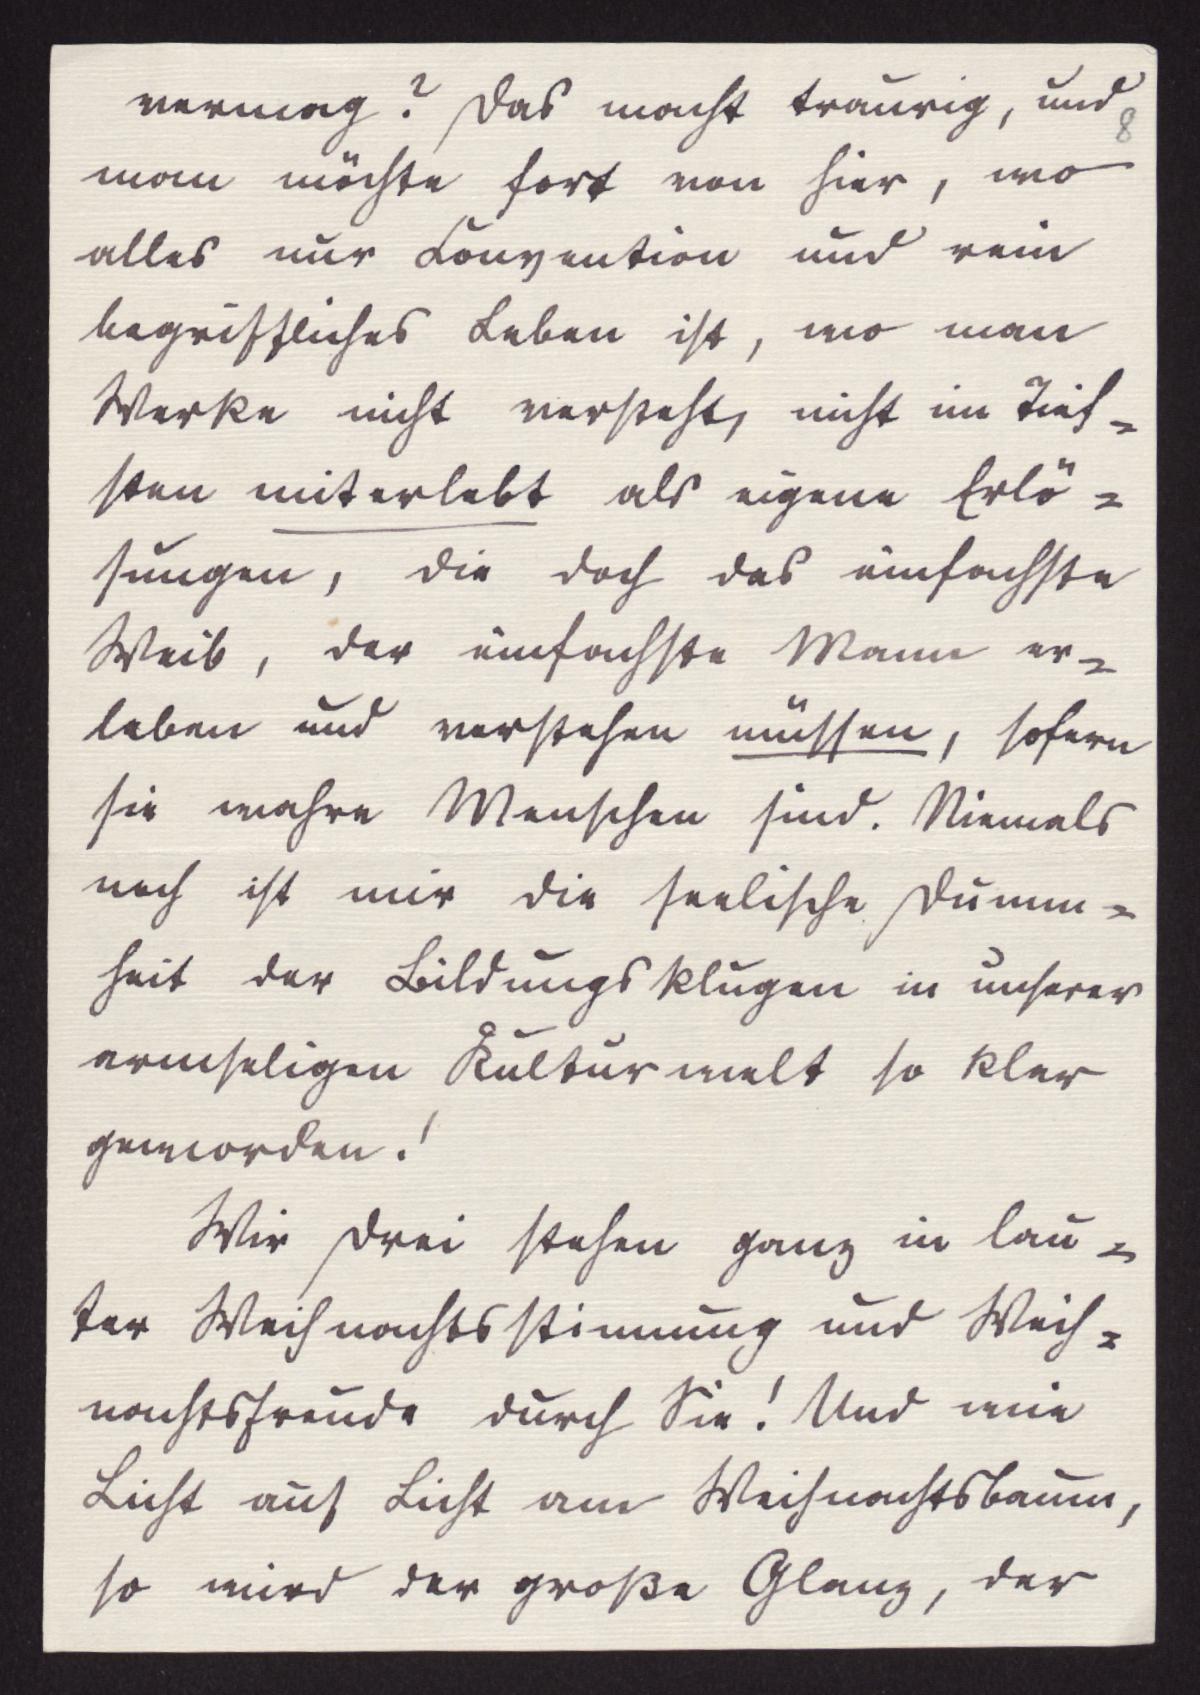 vermag? Das macht traurig, und
8
man möchte fort von hier, wo
alles nur Convention und rein
begriffliches Leben ist, wo man
Werke nicht versteht, nicht im Tief=
sten miterlebt als eigene Erlö=
sungen, die doch das einfachste
Weib, der einfachste Mann er=
leben und verstehen müssen, sofern
sie wahre Menschen sind. Niemals
noch ist mir die seelische Dumm=
heit der Bildungsklugen in unserer
armseligen Kulturwelt so klar
geworden!
Wir Drei stehen ganz in lau=
ter Weihnachtsstimmung und Weih=
nachtsfreude durch Sie! Und wie
Licht auf Licht am Weihnachtsbaum,
so wird der große Glanz, der